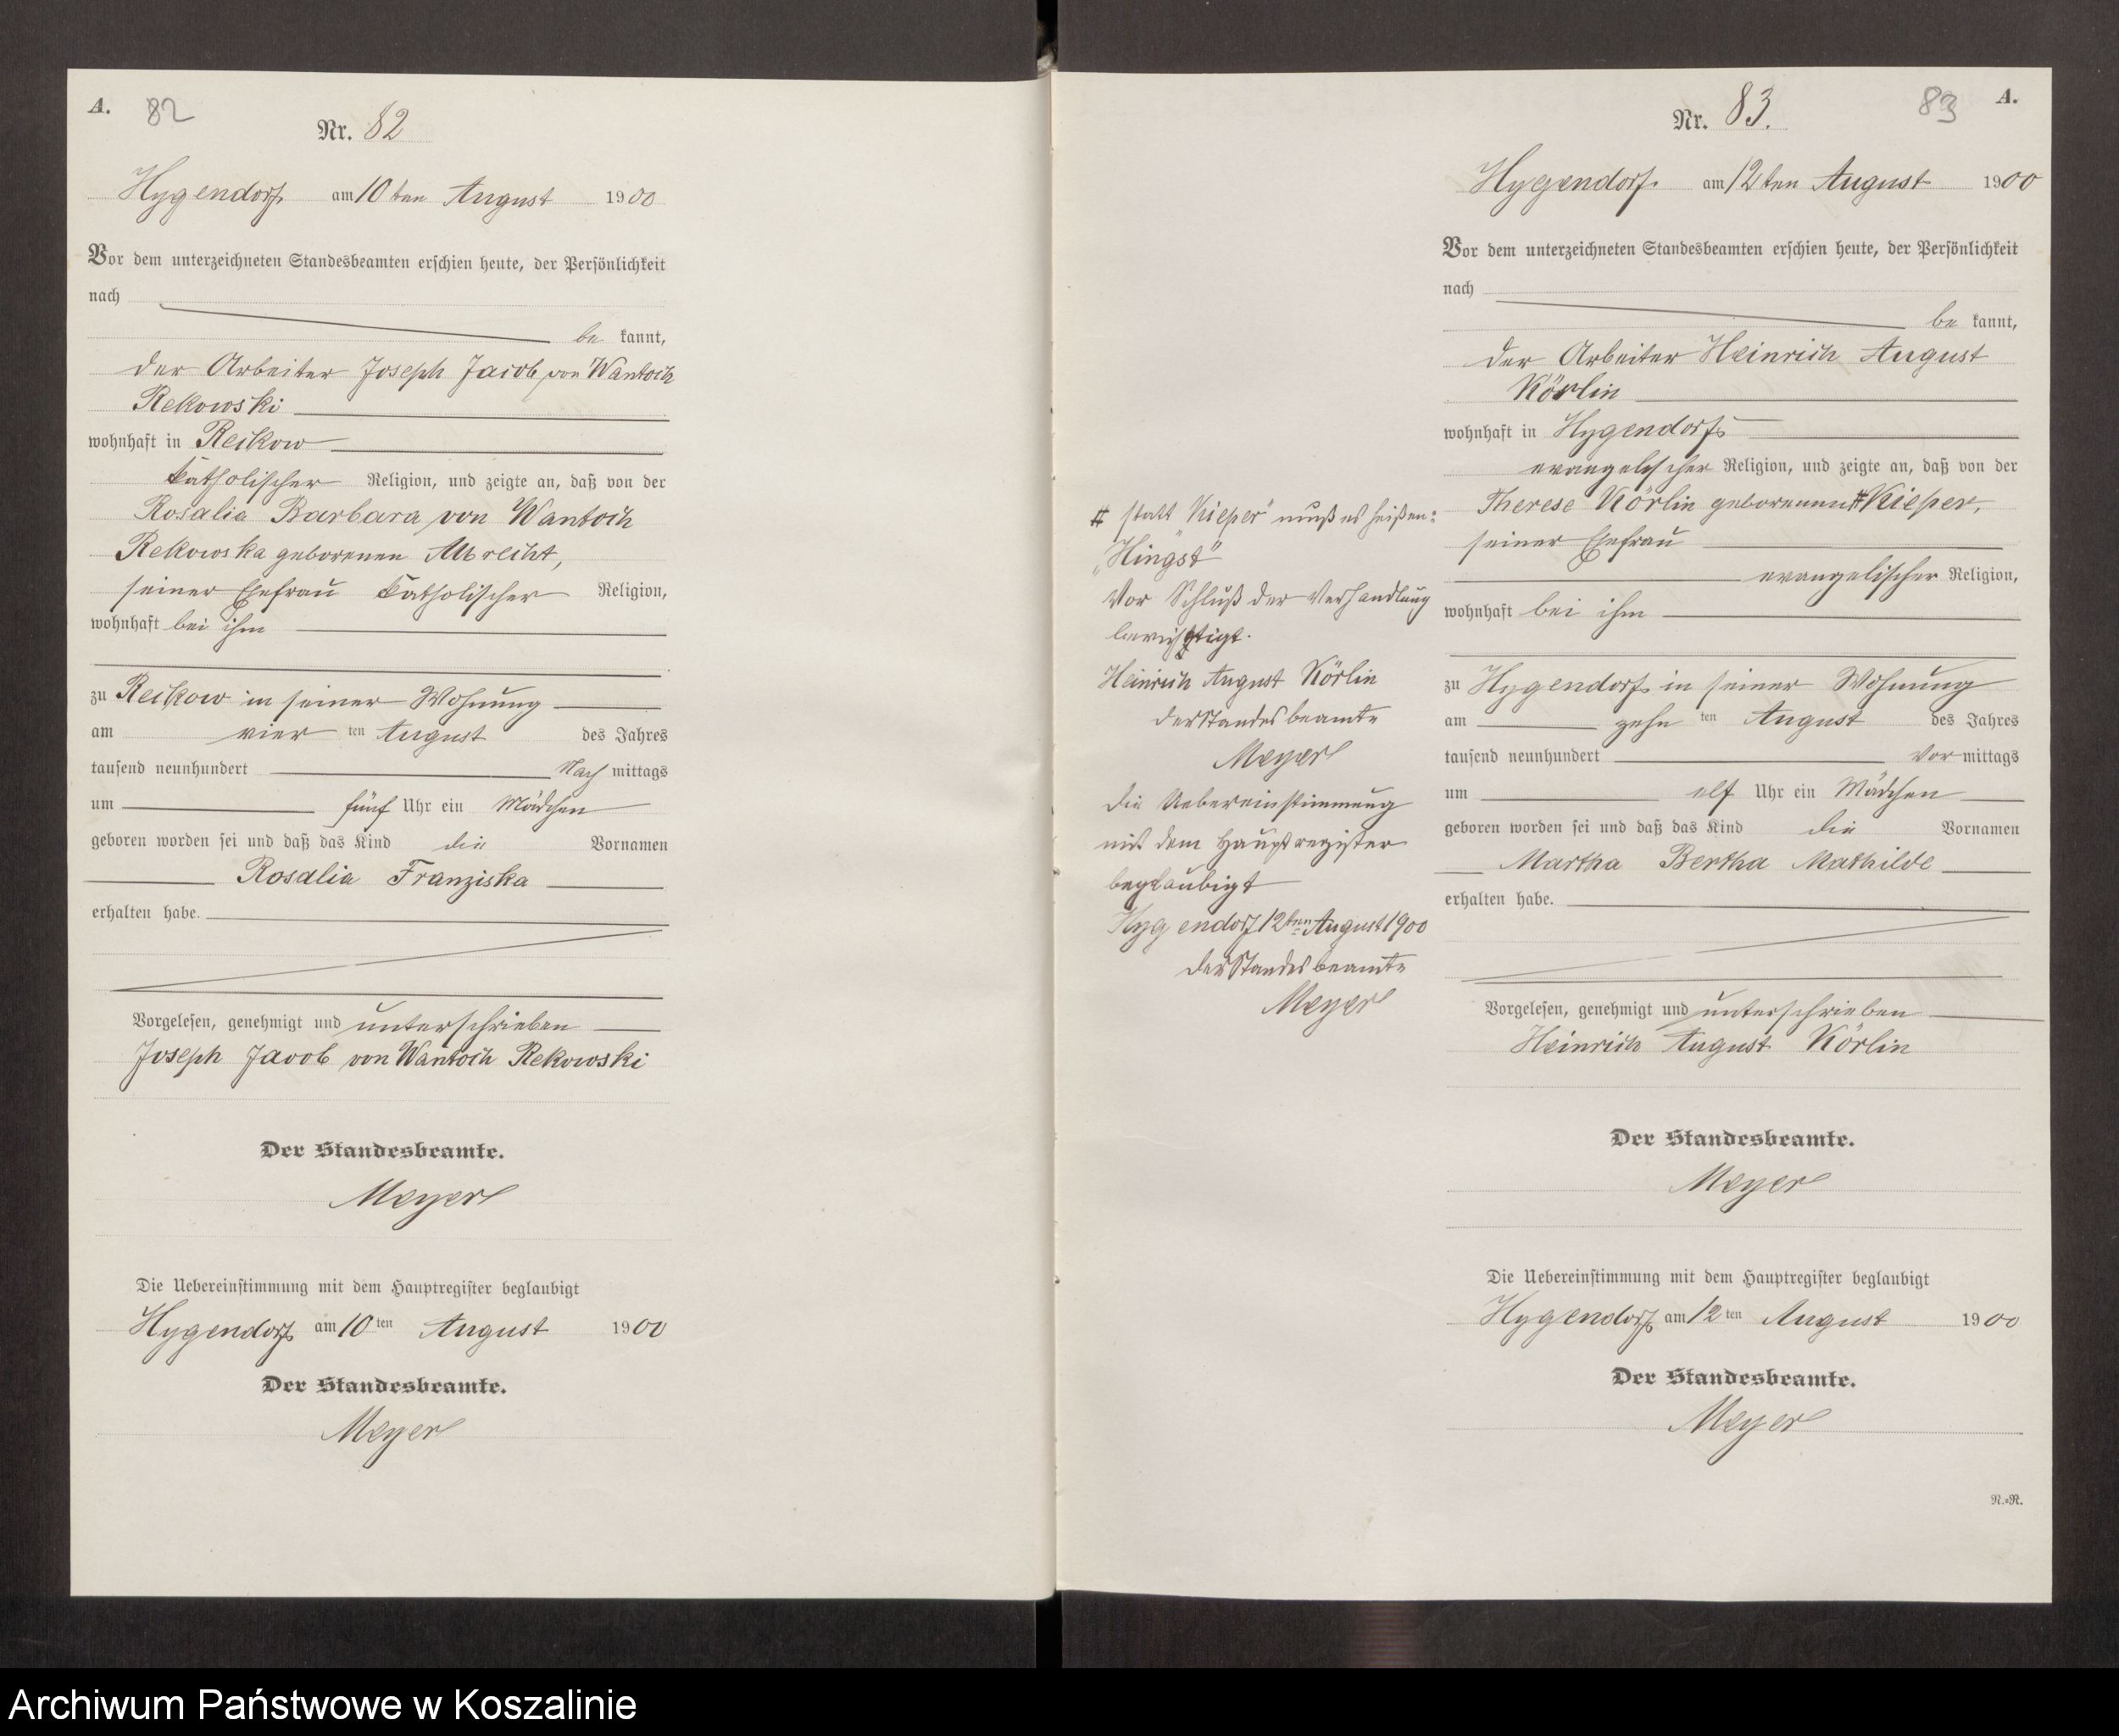 A. 82
Nr. 82
Hygendorf am 10ten August 1900
Vor dem unterzeichneten Standesbeamten erschien heute, der Persönlichkeit
nach
be kannt,
der Arbeiter Joseph Jacob von Wantoch
Rekowski
wohnhaft in Reckow
katholischer Religion, und zeigte an, daß von der
Rosalia Barbara von Wantoch
Rekowska geborenen Albrecht,
seiner Ehefrau katholischer Religion,
wohnhaft bei ihm
zu Reckow in seiner Wohnung
am vier ten August des Jahres
tausend neunhundert Nach mittags
um fünf Uhr ein Mädchen
geboren worden sei und daß das Kind die Vornamen
Rosalia Franziska
erhalten habe.
Vorgelesen, genehmigt und unterschrieben
Joseph Jacob von Wantoch Rekowski
Der Standesbeamte.
Meyer
Die Uebereinstimmung mit dem Hauptregister beglaubigt
Hygendorf am 10 ten August 1900
Der Standesbeamte.
Meyer
# statt "Kieper" muß es heißen:
„Hingst"
Vor Schluß der Verhandlung
berichtigt.
Heinrich August Körlin
der Standesbeamte
Meyer
die Uebereinstimmung
mit dem Hauptregister
beglaubigt
Hygendorf 12ten August 1900
der Standesbeamte
Meyer
83 A.
Nr. 83.
Hygendorf am 12ten August 1900
Vor dem unterzeichneten Standesbeamten erschien heute, der Persönlichkeit
nach
be kannt,
der Arbeiter Heinrich August
Körlin
wohnhaft in Hygendorf
evangelischer Religion, und zeigte an, daß von der
Therese Körlin geborenen # Kieper,
seiner Ehefrau
evangelischer Religion,
wohnhaft bei ihm
zu Hygendorf in seiner Wohnung
am zehn ten August des Jahres
tausend neunhundert Vor mittags
um elf Uhr ein Mädchen
geboren worden sei und daß das Kind die Vornamen
Martha Bertha Mathilde
erhalten habe.
Vorgelesen, genehmigt und unterschrieben
Heinrich August Körlin
Der Standesbeamte.
Meyer
Die Uebereinstimmung mit dem Hauptregister beglaubigt
Hygendorf am 12 ten August 1900
Der Standesbeamte.
Meyer
N.=R.
Archiwum Państwowe w Koszalinie